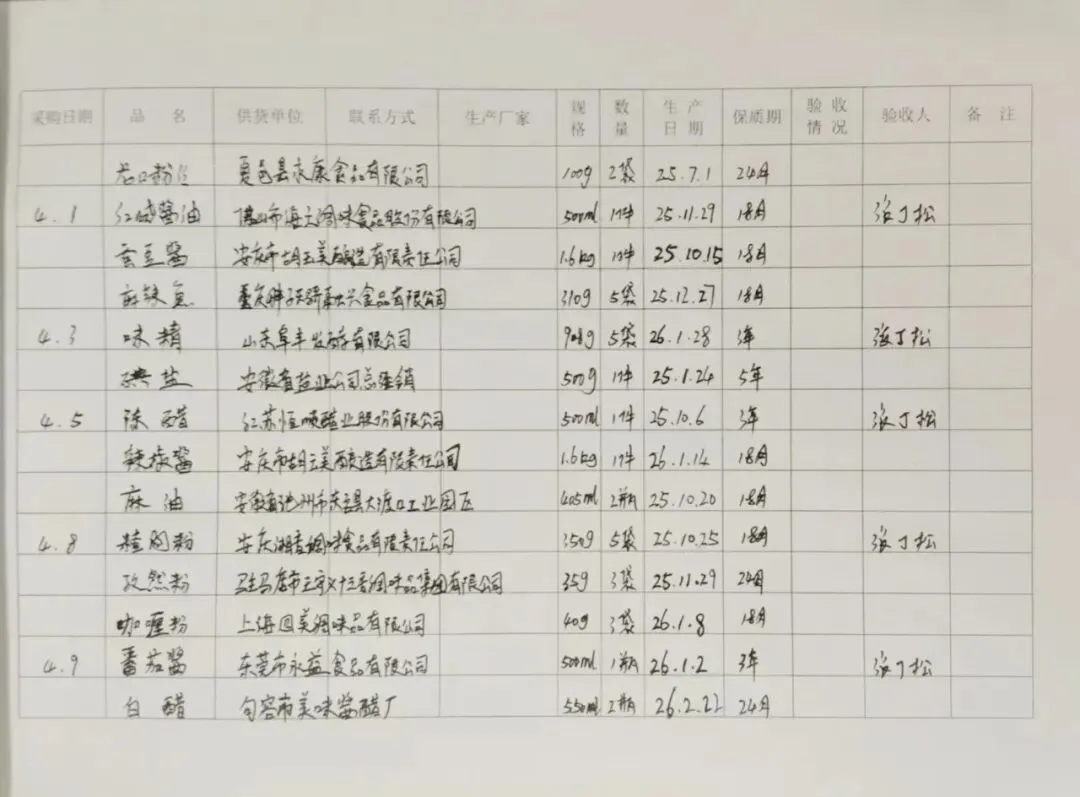 采购日期 品名 供货单位 联系方式 生产厂家 规格 数量 生产日期 保质期 验收情况 验收人 备注
龙口粉丝 夏邑县永康食品有限公司 100g 2袋 25.7.1 24月
4.1 红烧酱油 佛山市海天调味食品股份有限公司 500ml 1件 25.11.29 18月 张丁松
蚕豆酱 安庆市胡玉美酿造有限责任公司 1.6kg 1件 25.10.15 18月
麻辣鱼 重庆胖子天骄融兴食品有限公司 310g 5袋 25.12.27 18月
4.3 味精 山东阜丰发酵有限公司 908g 5袋 26.1.28 3年 张丁松
碘盐 安徽省盐业公司总经销 500g 1件 25.1.24 5年
4.5 陈醋 江苏恒顺醋业股份有限公司 500ml 1件 25.10.6 3年 张丁松
辣椒酱 安庆市胡玉美酿造有限责任公司 1.6kg 1件 26.1.14 18月
麻油 安徽省池州市东至县大渡口工业园区 405ml 2瓶 25.10.20 18月
4.8 精肉粉 安庆 调味食品有限责任公司 350g 5袋 25.10.25 18月 张丁松
孜然粉 驻马店市王守义十三香调味品集团有限公司 35g 3袋 25.11.29 24月
咖喱粉 上海 美调味品有限公司 40g 3袋 26.1.8 18月
4.9 番茄酱 东莞市永益食品有限公司 500ml 1瓶 26.1.2 3年 张丁松
白醋 句容市美味酱醋厂 550ml 2瓶 26.2.22 24月